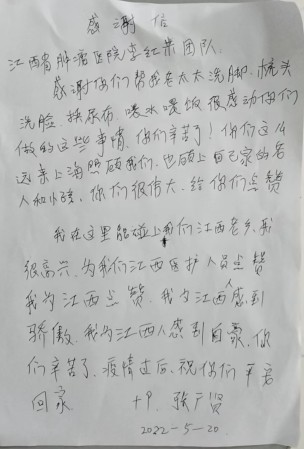 感谢信
江西省肿瘤医院李红英团队.
感谢你们帮我老太太洗脚.梳头
洗脸.换尿布.喂水喂饭很感动你们
做的这些事情.你们辛苦了!你们这么
远来上海照顾我们,也顾上自己家的老
人和小孩,你们很伟大.给你们点赞
我在这里能碰上我们江西老乡,我
很高兴.为我们江西医护人员点赞
我为江西点赞.我为江西人感到
骄傲.我为江西人感到自豪,你
们辛苦了.疫情过后.祝你们平安
回家 张广贤
2022-5-20.